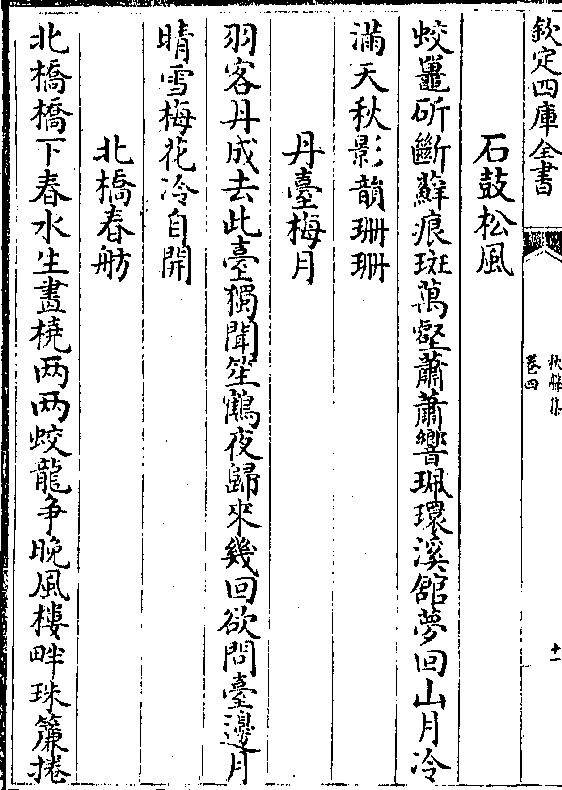 欽定四庫全書
卷四
十一
石鼓松風
蛟鼉斫斷蘚痕斑萬壑蕭蕭響珮環溪舘夢回山月冷
滿天秋影韻珊珊
丹臺梅月
羽客丹成去此臺獨聞笙鶴夜歸來幾回欲問臺邊月
晴雪梅花冷自開
北橋春舫
北橋橋下春水生畫橈两两蛟龍争晚風樓畔珠簾捲